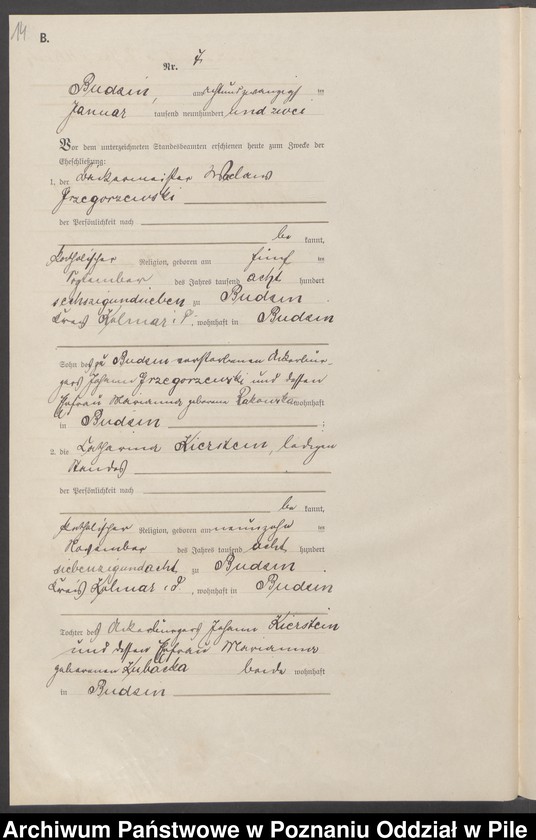 14
B.
Nr. 4
Budsin, am achtundzwanzig ten
Januar tausend neunhundert und zwei
Vor dem unterzeichneten Standesbeamten erschienen heute zum Zwecke der
Eheschließung:
1. der Bäckermeister
Grzegorzewski
der Persönlichkeit nach
be kannt,
katholischer Religion, geboren am fünf ten
September des Jahres tausend acht hundert
sechszigundsieben zu Budsin
Kreis Kolmar i. P., wohnhaft in Budsin
Sohn des zu Budsin verstorbenen Ackerbür-
gers Johann Grzegorzewski und dessen
Ehefrau Marianna geborene Rakowska wohnhaft
in Budsin ;
2. die Catharina Kierstein, ledigen
Standes
der Persönlichkeit nach
be kannt,
katholischer Religion, geboren am neunzehn ten
November des Jahres tausend acht hundert
siebenzigundacht zu Budsin
Kreis Kolmar i. P., wohnhaft in Budsin
Tochter des Ackerbürgers Johann Kierstein
und dessen Ehefrau Marianna
geborenen Kubacka beide wohnhaft
in Budsin
Archiwum Państwowe w Poznaniu Oddział w Pile